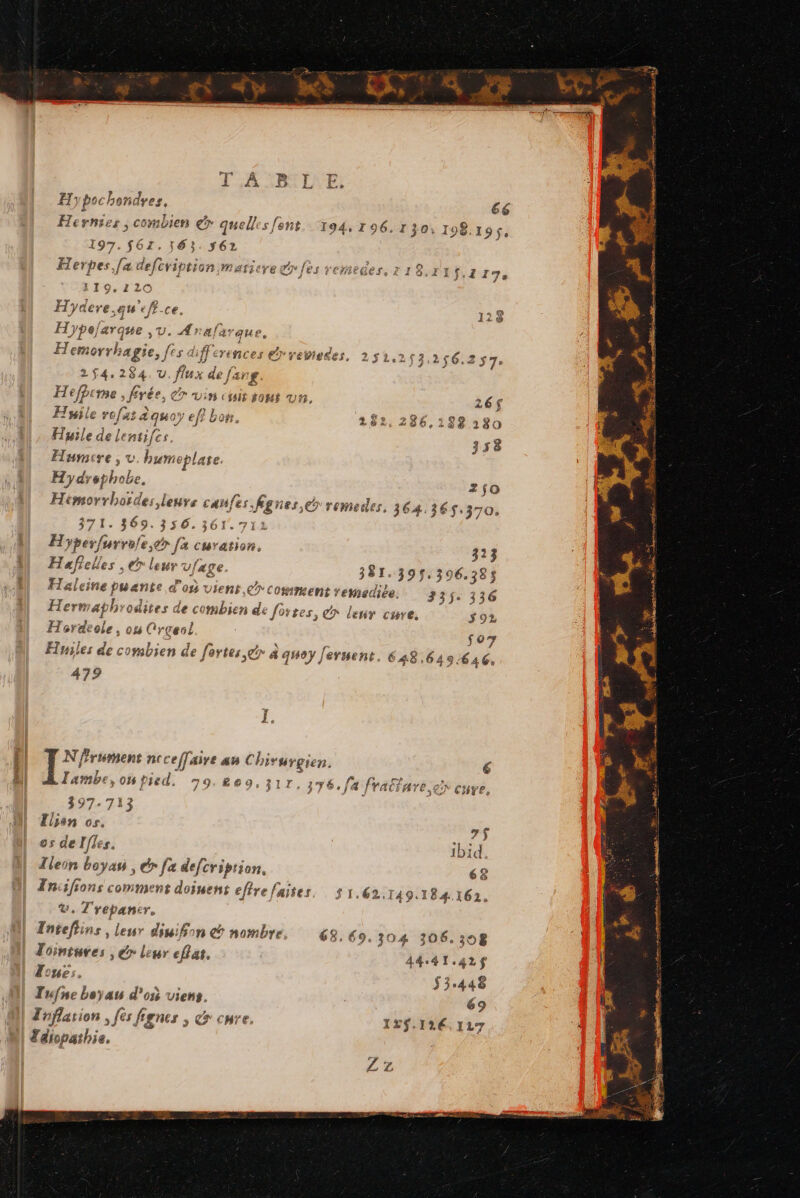 TABLE.
Hypochondres, 66
Hernies, combien & quelles sont. 194. 196. 130. 198. 195.
197. 561. 563. 562
Herpes, sa description, matiere & ses remedes. 118. 115. 117.
119. 120
Hydere, qu'est-ce. 128
Hyposarque, v. Anasarque.
Hemorrhagie, ses differences & remedes. 251. 253. 256. 257.
254. 284. v. flux de sang.
ferrée, & vin cuit sont un. 265
Huile rosat à quoy est bon. 282. 286. 288 280
Huile de lentiscs. 358
Humere, v. humoplate.
Hydrophobe. 250
Hemorrhoïdes, leurs causes, signes, & remedes. 364. 365. 370.
371. 369. 356. 361. 712
Hypersarcose, & sa curation. 323
& leur usage. 381. 395. 396. 385
Haleine puante d'où vient, & comment remediée. 335. 336
Hermaphrodites de combien de sortes, & leur cure. 592
Hordeole, ou Orgeol. 507
Huiles de combien de sortes, & à quoy seruent. 648. 649. 646.
479
I.
INstrument necessaire au Chirurgien. 6
Iambe, ou pied. 79. 809. 311. 376. sa fracture, & cure.
397. 713
Ilion os. 75
os des Isles. ibid.
Ileon boyau, & sa description. 68
Incisions comment doiuent estre faites. 51. 62. 149. 184. 162.
v. Trepaner.
Intestins, leur diuision & nombre. 68. 69. 304 306. 308
Iointures, & leur estat. 44. 41. 425
Ioues. 53. 448
boyau d'où vient. 69
Inflation, ses signes, & cure. 125. 126. 127
Idiopathie.
Zz